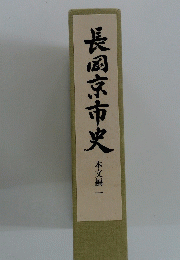 長岡京市史
本文編一